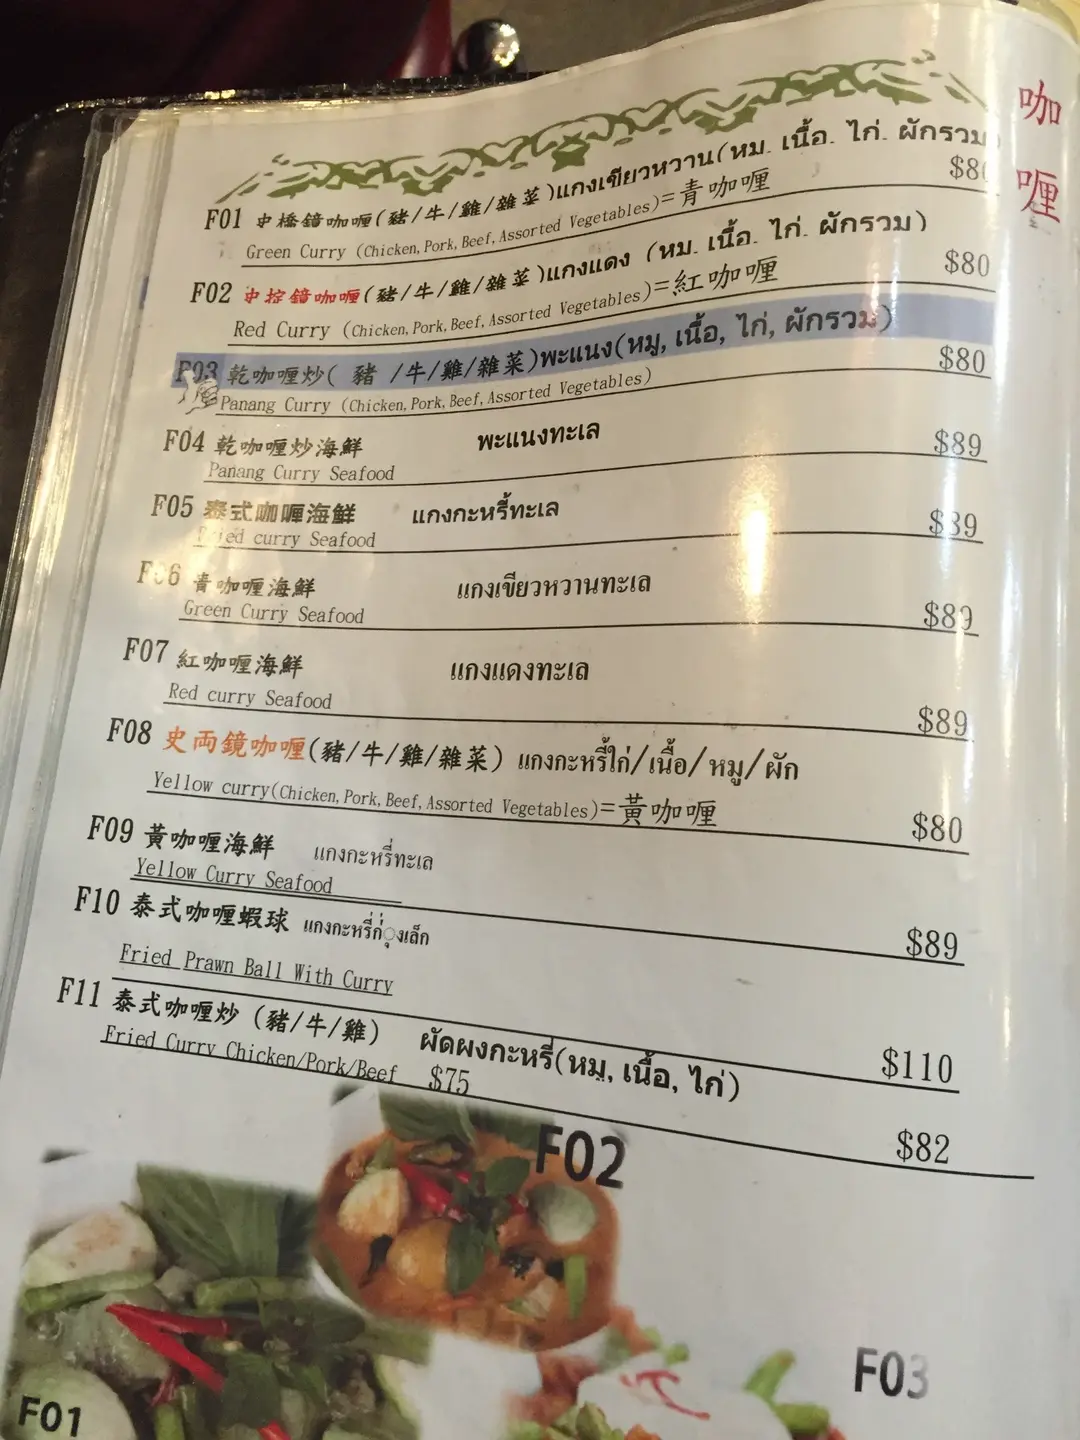 咖喱
F01 史橋鏡咖喱(豬/牛/雞/雜菜)แกงเขียวหวาน(หม. เนื้อ. ไก่. ผักรวม)
Green Curry (Chicken,Pork,Beef,Assorted Vegetables)=青咖喱 $80
F02 史控鏡咖喱(豬/牛/雞/雜菜)แกงแดง (หม. เนื้อ. ไก่. ผักรวม)
Red Curry (Chicken,Pork,Beef,Assorted Vegetables)=紅咖喱 $80
F03 乾咖喱炒( 豬 /牛/雞/雜菜)พะแนง(หมู, เนื้อ, ไก่, ผักรวม)
Panang Curry (Chicken,Pork,Beef,Assorted Vegetables) $80
F04 乾咖喱炒海鮮 พะแนงทะเล
Panang Curry Seafood $89
F05 泰式咖喱海鮮 แกงกะหรี้ทะเล
Fried curry Seafood $89
F06 青咖喱海鮮 แกงเขียวหวานทะเล
Green Curry Seafood $89
F07 紅咖喱海鮮 แกงแดงทะเล
Red curry Seafood $89
F08 史両鏡咖喱(豬/牛/雞/雜菜) แกงกะหรี้ไก่/เนื้อ/หมู/ผัก
Yellow curry(Chicken,Pork,Beef,Assorted Vegetables)=黃咖喱 $80
F09 黃咖喱海鮮 แกงกะหรี่ทะเล
Yellow Curry Seafood $89
F10 泰式咖喱蝦球 แกงกะหรี่กุ่้งเล็ก
Fried Prawn Ball With Curry $110
F11 泰式咖喱炒 (豬/牛/雞) ผัดผงกะหรี่(หมู, เนื้อ, ไก่)
Fried Curry Chicken/Pork/Beef $75 $82
F02
F03
F01